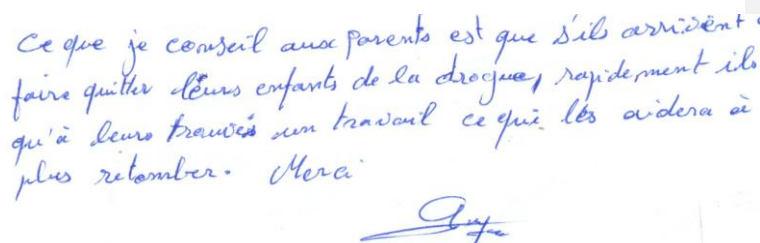 Ce que je conseil aux parents est que s'ils arrivent
faire quitter leurs enfants de la drogue, rapidement ils
qu'à leurs trouvés un travail ce qui les aidera à
plus retomber. Merci